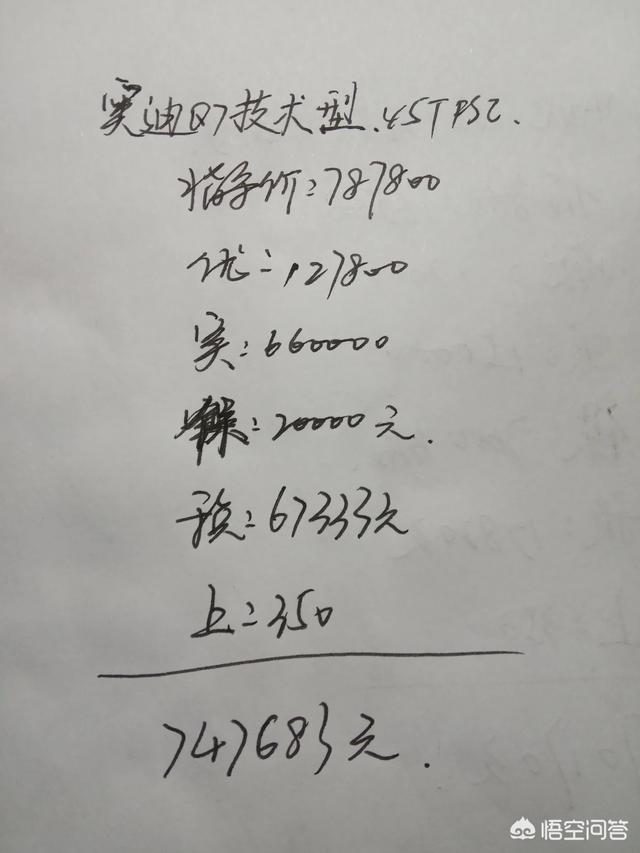 奥迪Q7技术型.45TFSI.
指导价:787800
优:127800
实:660000
保:20000元.
税:67333元
上:350
747683元.
悟空问答